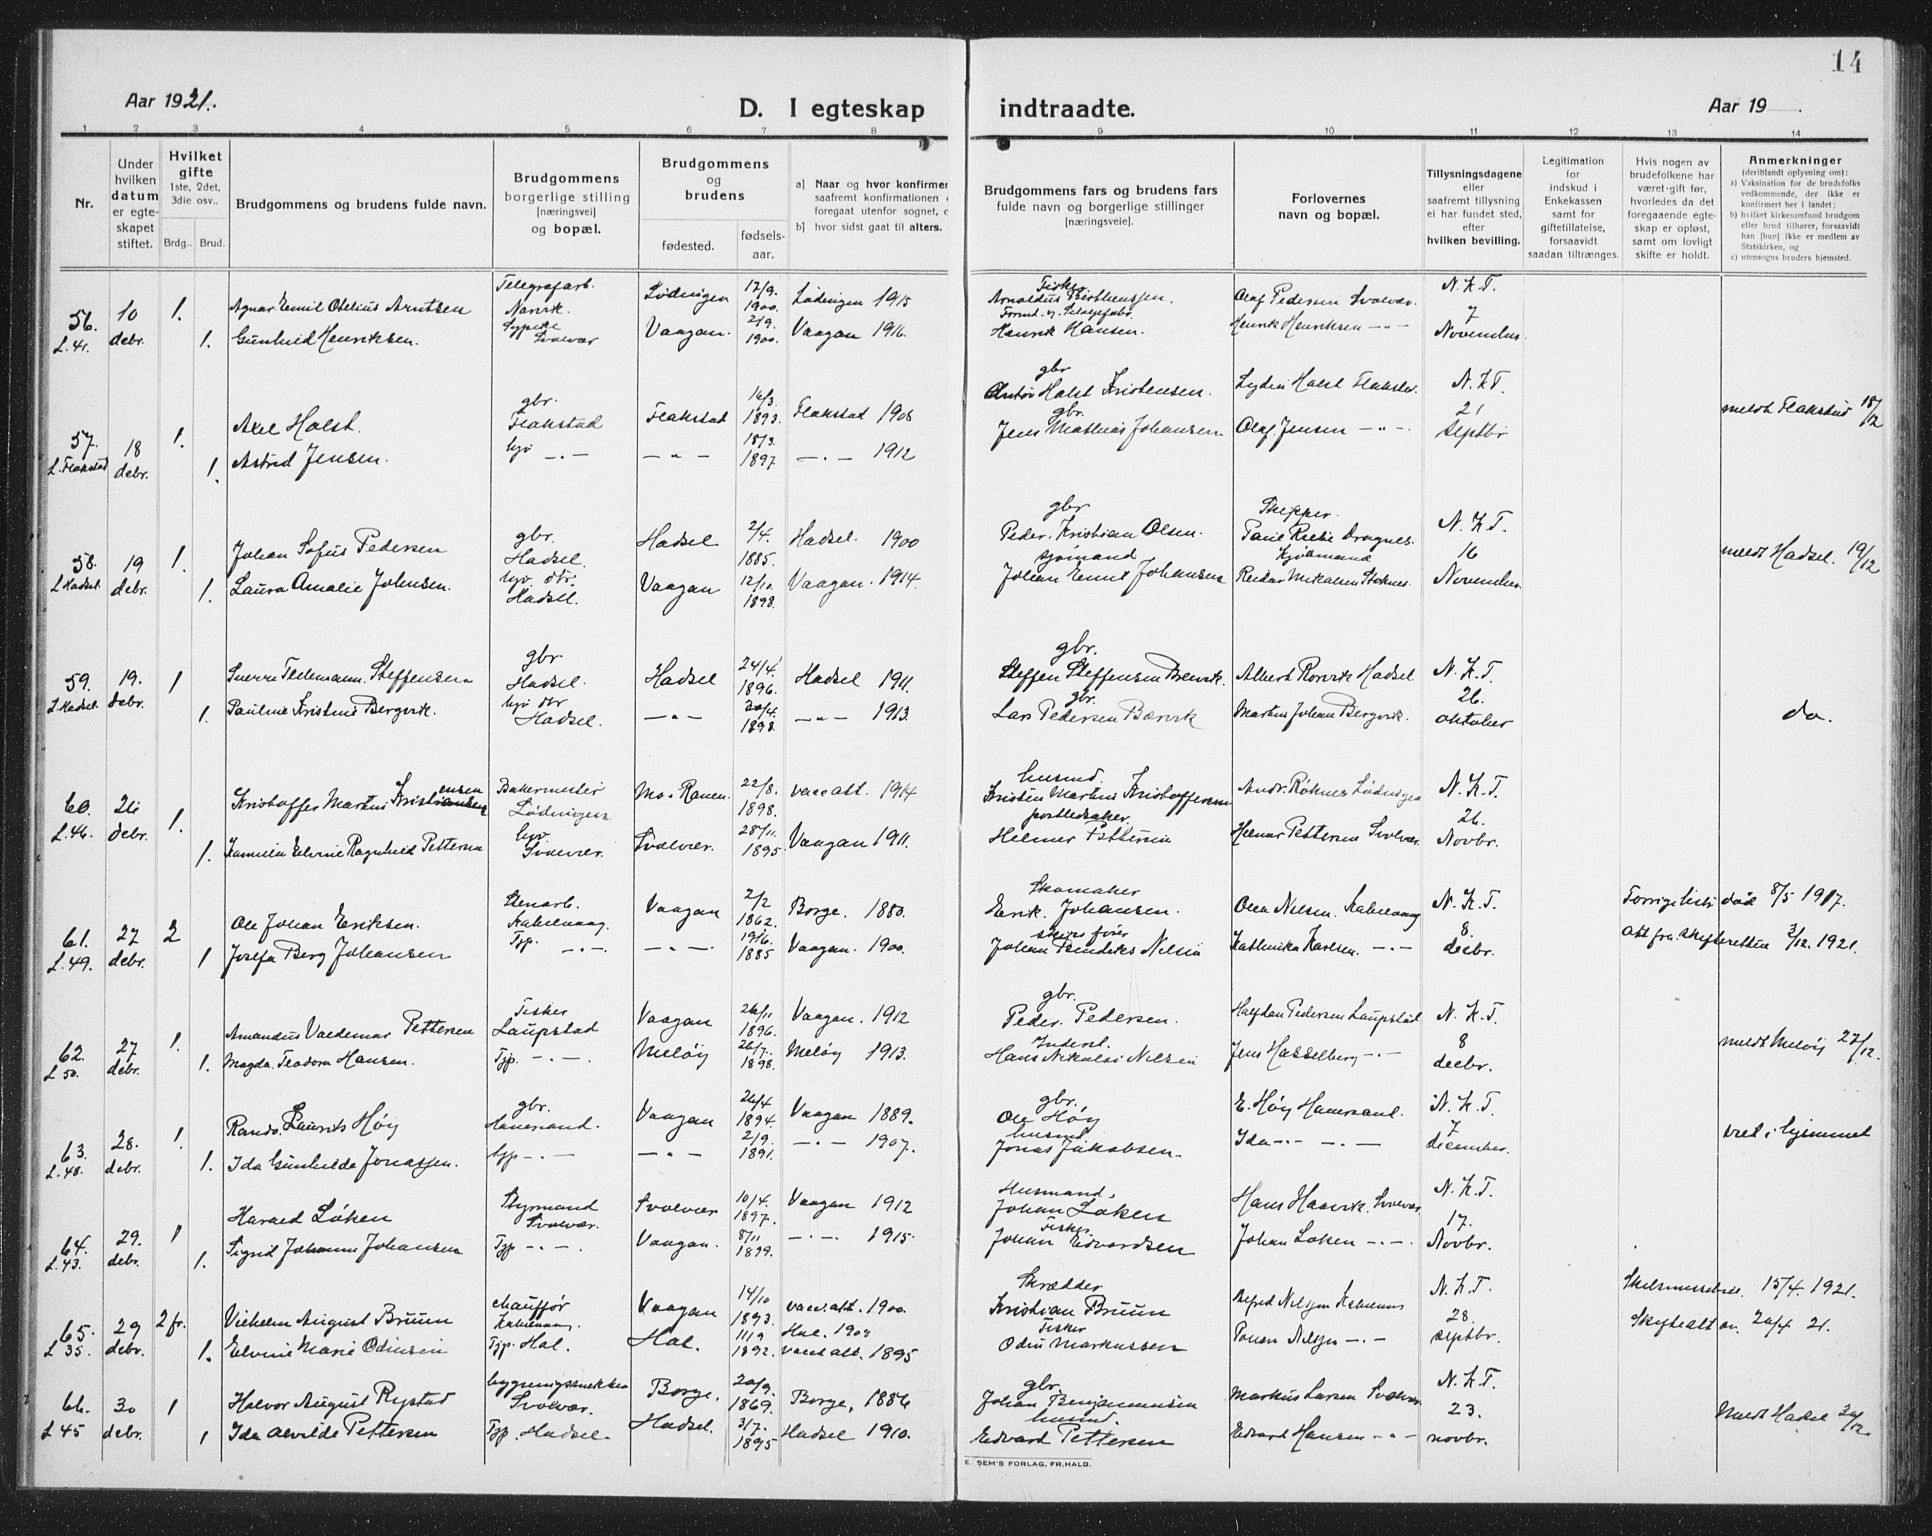 14
Aar 1921.
D. I egteskap indtraadte.
Aar 19 .
1 2 3 4 5 6 7 8 9 10 11 12 13 14
Nr.
Under hvilken datum er egteskapet stiftet.
Hvilket gifte 1ste, 2det, 3die osv.. Brdg.. Brud.
Brudgommens og brudens fulde navn.
Brudgommens borgerlige stilling [næringsvei] og bopæl.
Brudgommens og brudens
fødested. fødselsaar.
a] Naar og hvor konfirmer
saafremt konfirmationen
foregaat utenfor sognet,
b] hvor sidst gaat til alters.
Brudgommens fars og brudens fars fulde navn og borgerlige stillinger [næringsveie].
Forlovernes navn og bopæl.
Tillysningsdagene eller saafremt tillysning ei har fundet sted, efter hvilken bevilling.
Legitimation for indskud i Enkekassen samt for giftetillatelse, forsaavidt saadan tiltrænges.
Hvis nogen av brudefolkene har været gift, hvorledes da det foregaaende egteskap er opløst, samt om lovlig skifte er holdt.
Anmerkninger
(deriblandt oplysning om):
a) Vaksination for de brudefolks vedkommende, der ikke er konfirmert her i landet;
b) hvilket kirkesamfund brudgom eller brud tilhører, forsaavidt han [hun] ikke er medlem av Statskirken, og
c) utensogns bruders hjemsted.
56. L. 41. 10 debr. 1. Agnar Emil Otelius Arntsen Telegrafarb. Narvik Lødingen 17/9. 1900. Lødingen 1915 Fisker Arnoldus Olaf Pedersen Svolvær N.K.T.
1. Gunhild Henriksen. Sypike Svolvær Vaagan. 2/9. 1900. Vaagan 1916. Henrik Hansen. Henrik Henriksen -"- 7 November
57. L. Flakstad 18 debr. 1. Axel Holst. gbr. Flakstad Flakstad 16/3. 1893. Flakstad 1908 gbr Anton Holst Kristensen. Holst Flakstad. N.K.T. meldt Flakstad 18/12
1. Astrid Jensen. -"- -"- 18/3. 1897 -"- 1912 gbr. Jens Mathias Johansen Olaf Jensen -"- 21 Septbr
58. L Hadsel. 19 debr. 1. Johan Sofus Pedersen gbr. Hadsel. Hadsel 2/4. 1885. Hadsel. 1900 gbr Peder Kristian Olsen. Skipper. N.K.T. meldt Hadsel. 19/12
1. Laura Amalie Johansen. Hadsel. Vaagan 12/10 1898. Vaagan. 1914 sjømand Johan Emil Johansen Kjøbmand Reidar Mikalsen 16 November
59. L Hadsel. 19. debr. 1 Sverre Tellemann Steffensen gbr Hadsel. Hadsel 24/4. 1896. Hadsel 1911. gbr. Steffen Steffensen Albert Rorvik Hadsel N.K.T.
1. Pauline Kristine Bergvik. Hadsel. -"- 20/4. 1898. -"- 1913. gbr. Lars Pedersen Martin Johan Bergvik. 26. oktober do.
60. L. 46. 26 debr. 1. Kristoffer Martin Kristiansen Bakermester Lødingen Mo i Ranen. 22/8. 1898. vacc att. 1914 husmd. Kristen Martin Kristoffersen Andr. Røknes Lødingen N.K.T.
1. Kamilla Elvine Ragnhild Pettersen Svolvær. Svolvær. 28/11. 1895 Vaagan 1911. Helmer Pettersen Helmer Pettersen Svolvær 26. Novbr.
61. L. 49. 27 debr. 2 Ole Johan Eriksen. Stenarb. Kabelvaag Vaagan 2/2 1862. Borge. 1880. Skomaker Erik Johansen. Olea Nilsen. Kabelvaag N.K.T. død 8/5 1917.
1 Josefa Berg Johansen Tjp. -"- -"- 19/6. 1885 Vaagan. 1900. Johan Nilsen Kathinka Karlsen. -"- 8. decbr. Att fra skifteretten 3/12. 1921.
62. L 50. 27 debr. 1. Amandus Valdemar Pettersen Fisker Laupstad Vaagan 26/11 1896. Vaagan. 1912 gbr. Peder Pedersen. Halfdan Pedersen Laupstad N.K.T. meldt Meløy 27/12.
1. Magda Teodora Hansen. Tjp. -"- Meløy 26/7. 1898. Meløy 1913. Inderst. Hans Nikolai Nilsen Jens Hasselberg -"- 8 decbr.
63. L. 48. 28. debr. 1. Laurits Høy gbr. Vaagan 26/4 1894. Vaagan 1889. gbr. Ole Høy E. Høy N.K.T. viet i hjemmet
1. Ida Gunhilda Jonassen. Tjp -"- -"- 2/9. 1891. -"- 1907. husmd Jonas Jakobsen. Ida -"- -"- 7 december.
64. L. 43. 29. debr. 1 Harald Løken Styrmand Svolvær. Svolvær 10/4. 1897. Vaagan 1912 Husmand. Johan Løken Hans Haarvik. Svolvær N.K.T.
1. Sigrid Johanne Johansen Tjp -"- Vaagan. 8/11 1899. -"- 1915. Fisker Johan Edvardsen Johan Løken -"- 17. Novbr.
65. L 35. 29 debr. 2 fr. Vilhelm August Bruun chauffør Kabelvaag Vaagan 14/10 1893. vacc. att. 1900. Skrædder Kristian Bruun Alfred Nilsen Kabelvaag N.K.T. 15/4 1921.
1. Elvine Marie Odinsen Tjp. Hol. Hol. 11/9 1892. Hol. 1909 vacc att. 1895 Fisker Odin Markussen Nilsen -"- 28. septbr. Skifteatt av. 20/4 21.
66. L 45 30 debr. 1 Halvor August Rystad bygningssnekker Svolvær. Borge. 20/9. 1869. Borge. 1886 gbr. Johan Benjaminsen Markus Larsen Svolvær N.K.T. Meldt Hadsel 30/12.
1 Ida Alvilde Pettersen Tjp. Hadsel Hadsel 3/7. 1895 Hadsel 1910. husmd. Edvard Pettersen Edvard Hansen -"- 23. novbr.
E SEM'S FORLAG, FR.HALD.